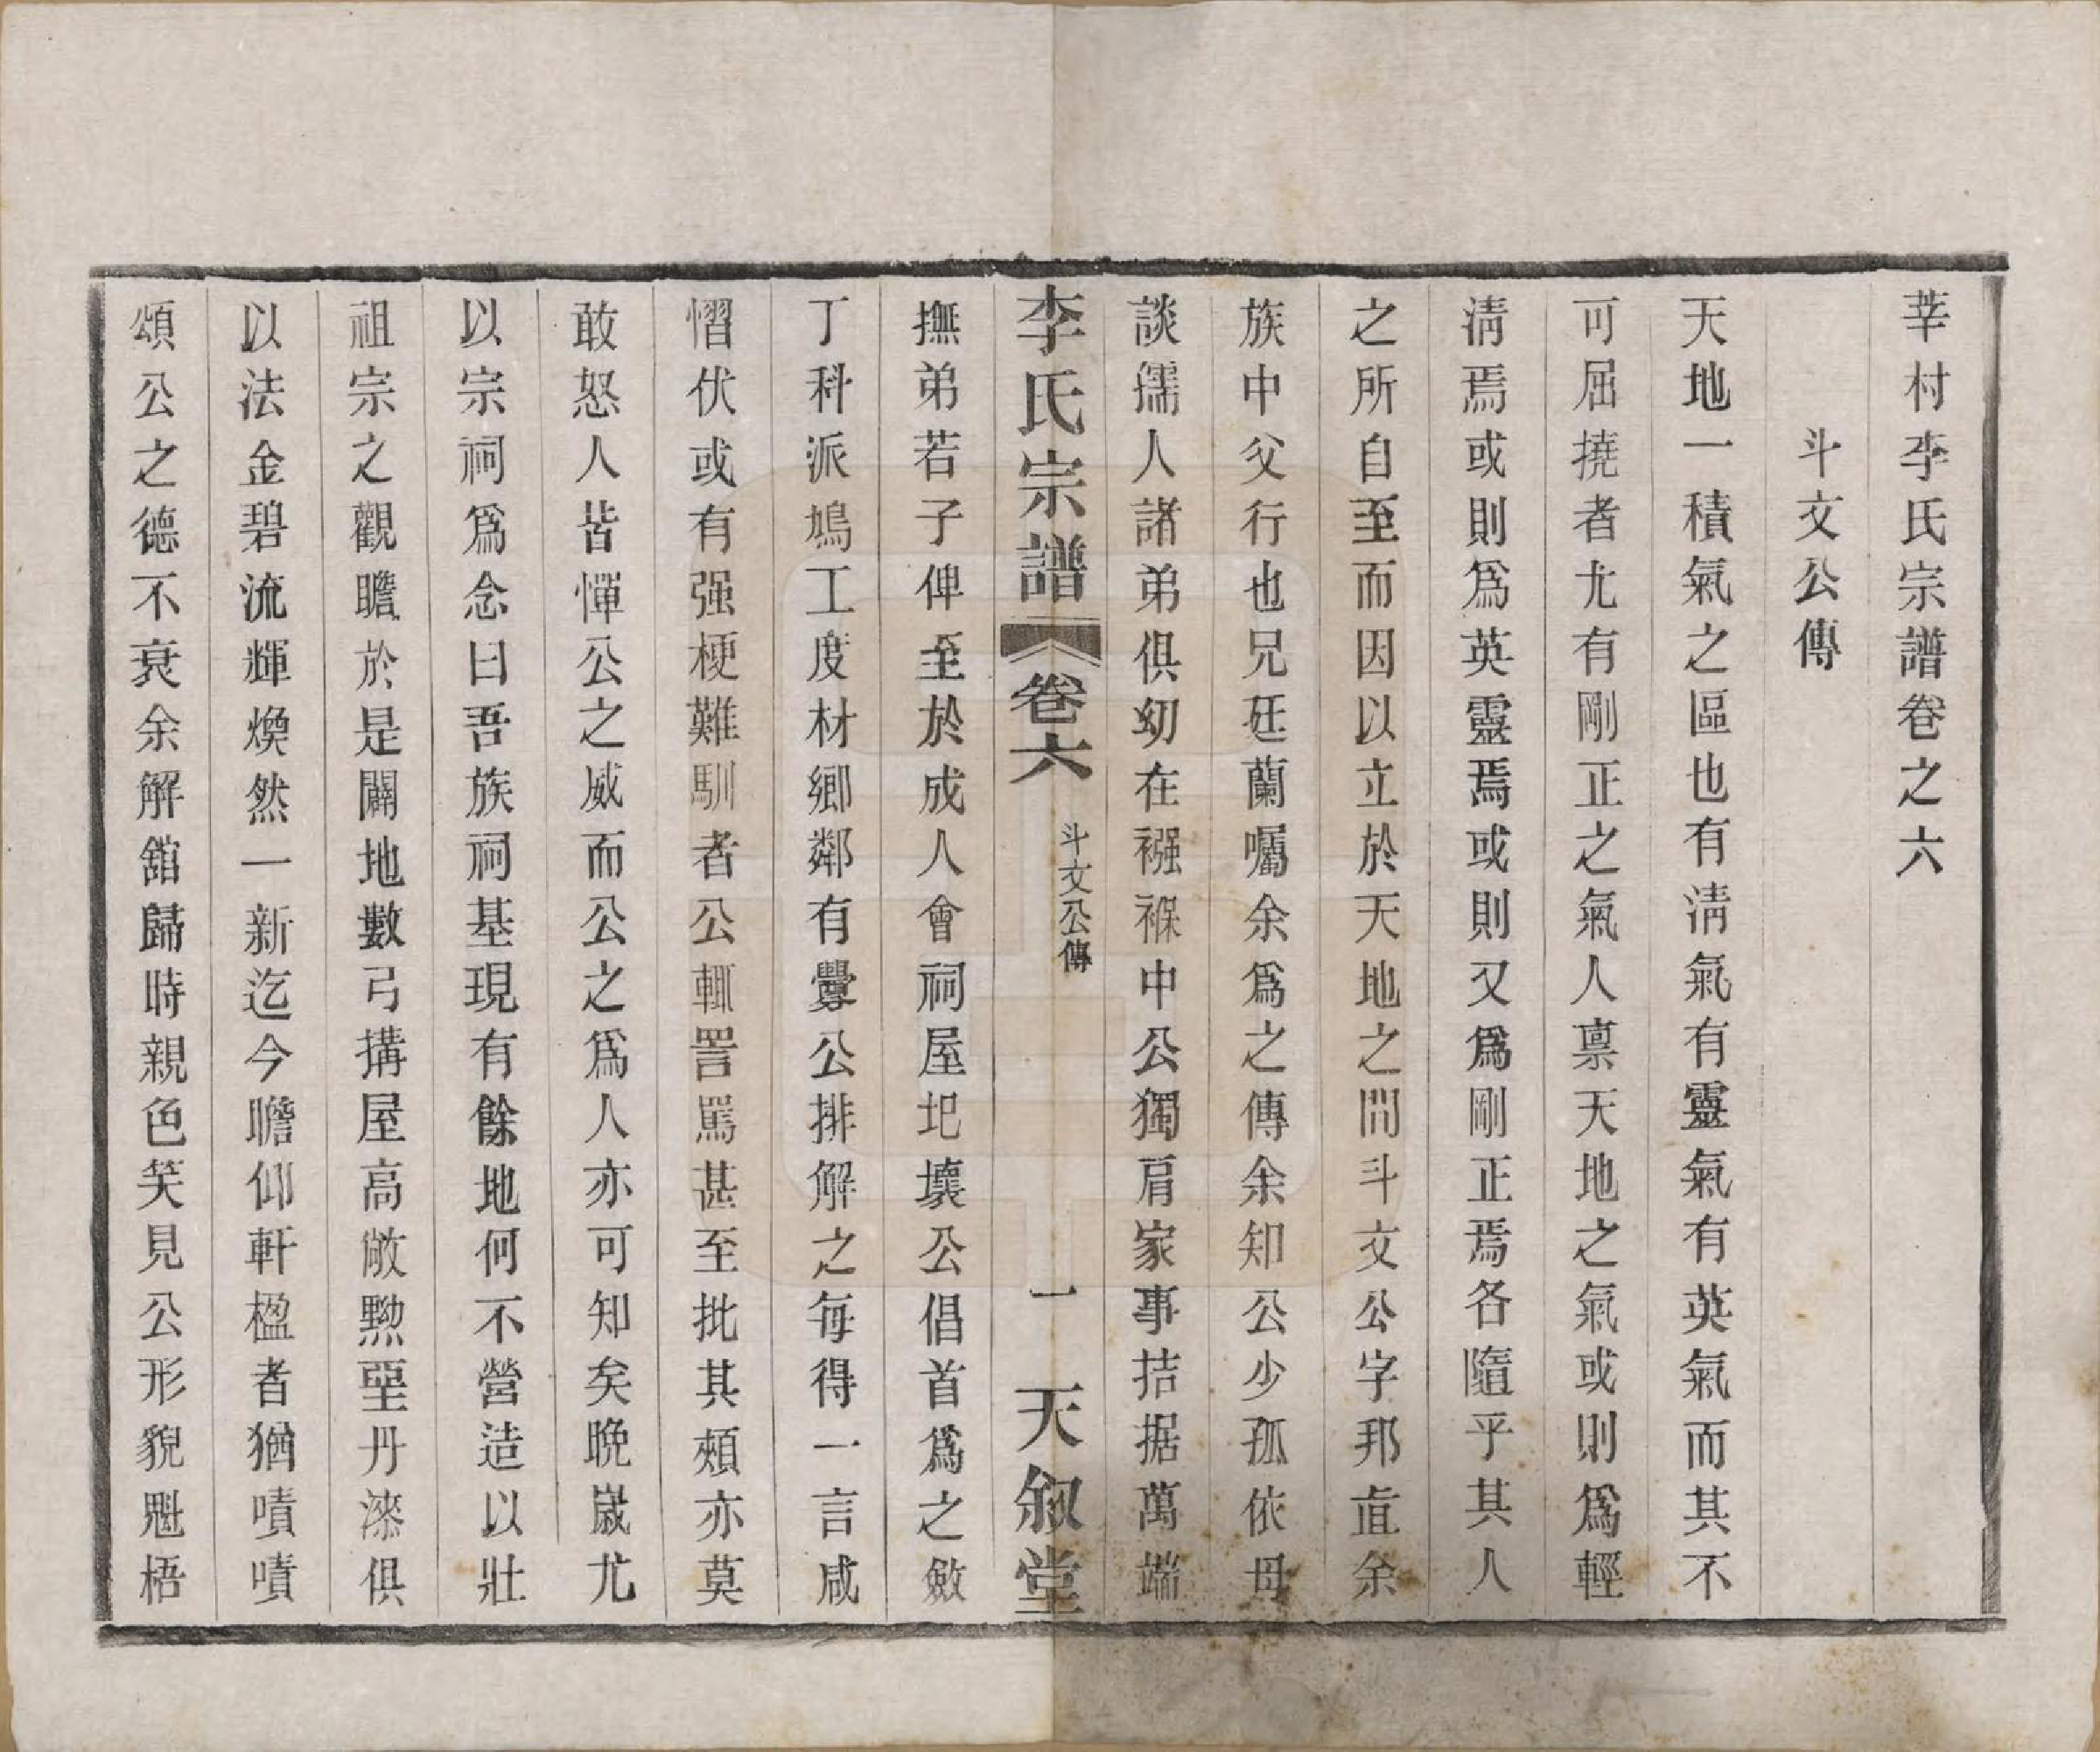 莘村李氏宗譜卷之六
斗文公傳
天地一積氣之區也有淸氣有靈氣有英氣而其不
可屈撓者尤有剛正之氣人禀天地之氣或則爲輕
淸焉或則爲英靈焉或則又爲剛正焉各隨乎其人
之所自至而因以立於天地之間斗文公字邦直余
族中父行也兄廷蘭囑余爲之傳余知公少孤依母
談孺人諸弟俱幼在襁褓中公獨肩家事拮据萬端
李氏宗譜 卷六 斗文公傳 一 天叙堂
撫弟若子俾至於成人會祠屋圮壞公倡首爲之斂
丁科派鳩工度材鄉鄰有釁公排解之每得一言咸
慴伏或有强梗難馴者公輒詈罵甚至批其頰亦莫
敢怒人皆憚公之威而公之爲人亦可知矣晩嵗尤
以宗祠爲念曰吾族祠基現有餘地何不營造以壯
祖宗之觀瞻於是闢地數弓搆屋高敞黝堊丹漆俱
以法金碧流輝煥然一新迄今瞻仰軒楹者猶嘖嘖
頌公之德不衰余解館歸時親色笑見公形貌魁梧